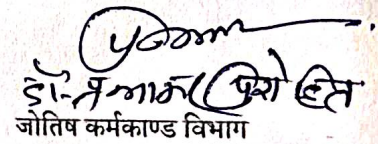 डॉ. प्रभाकर पुरोहित
जोतिष कर्मकाण्ड विभाग